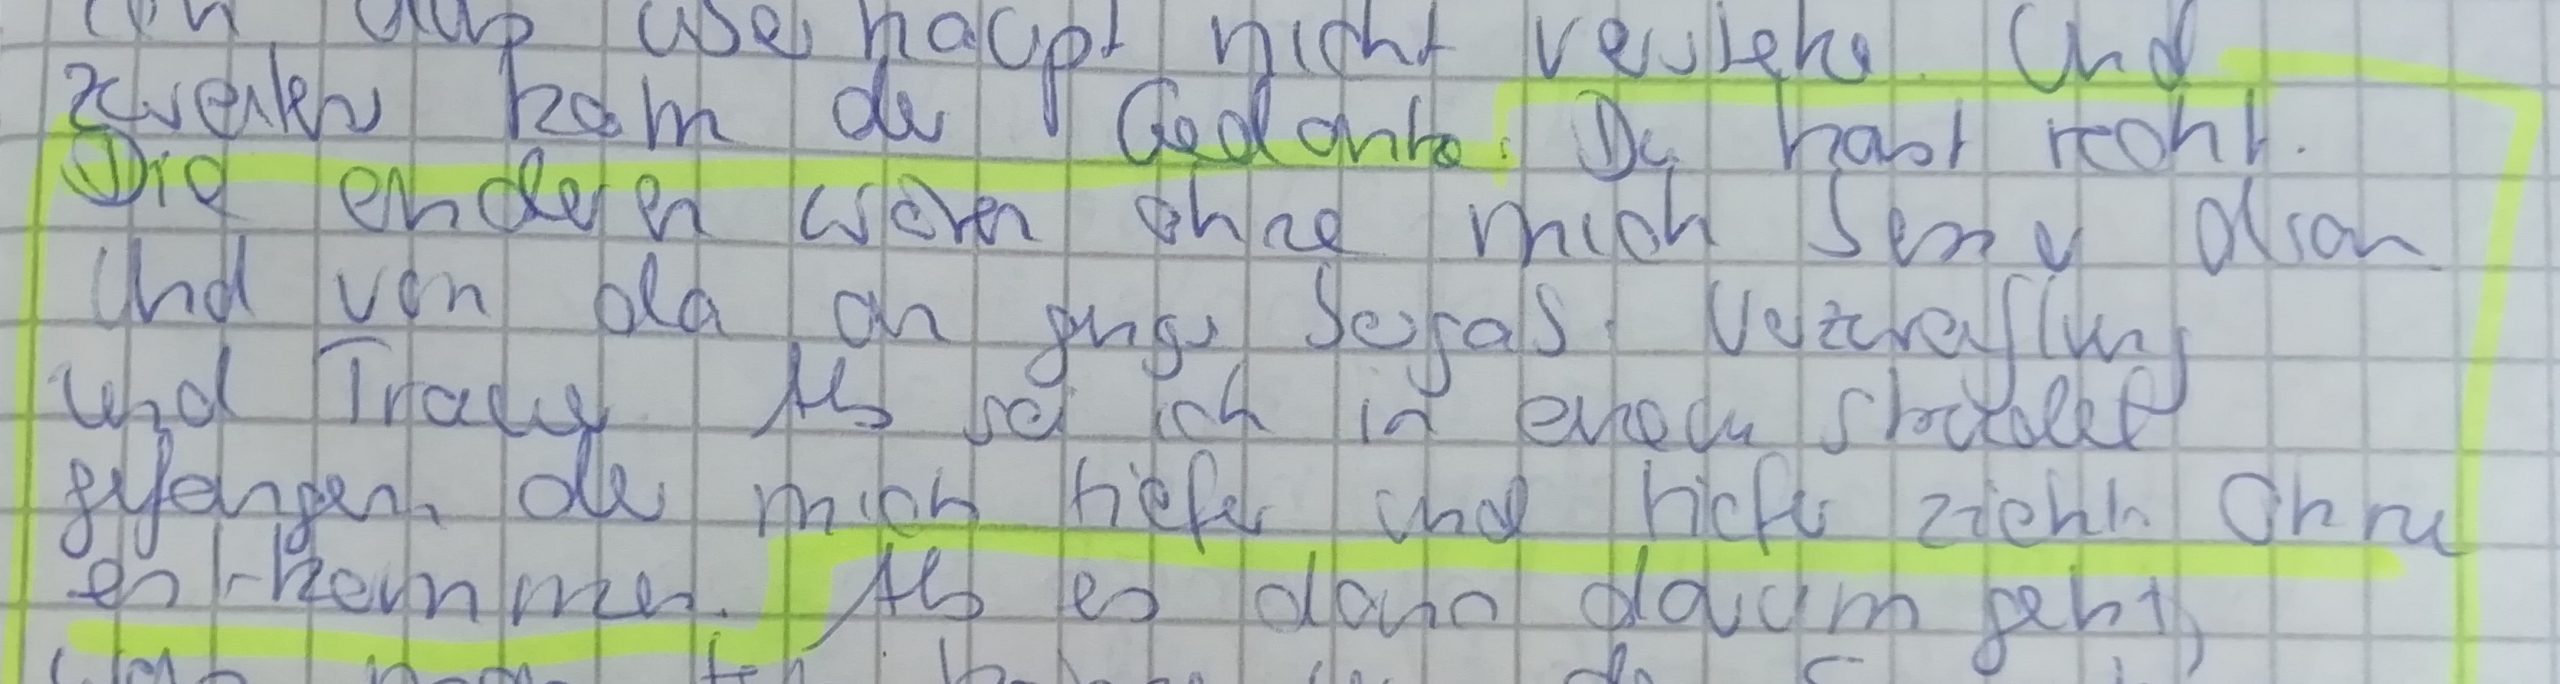 ich das überhaupt nicht verstehe. Und
zweitens kam der Gedanke: Du hast recht.
Die enderen wären ohne mich besser dran
Und von da an gings bergab. Verzweiflung
und Trauer. Als sei ich in einem Strudel
gefangen, der mich tiefer und tiefer zieht. Ohne
entkommen. Als es dann darum geht,